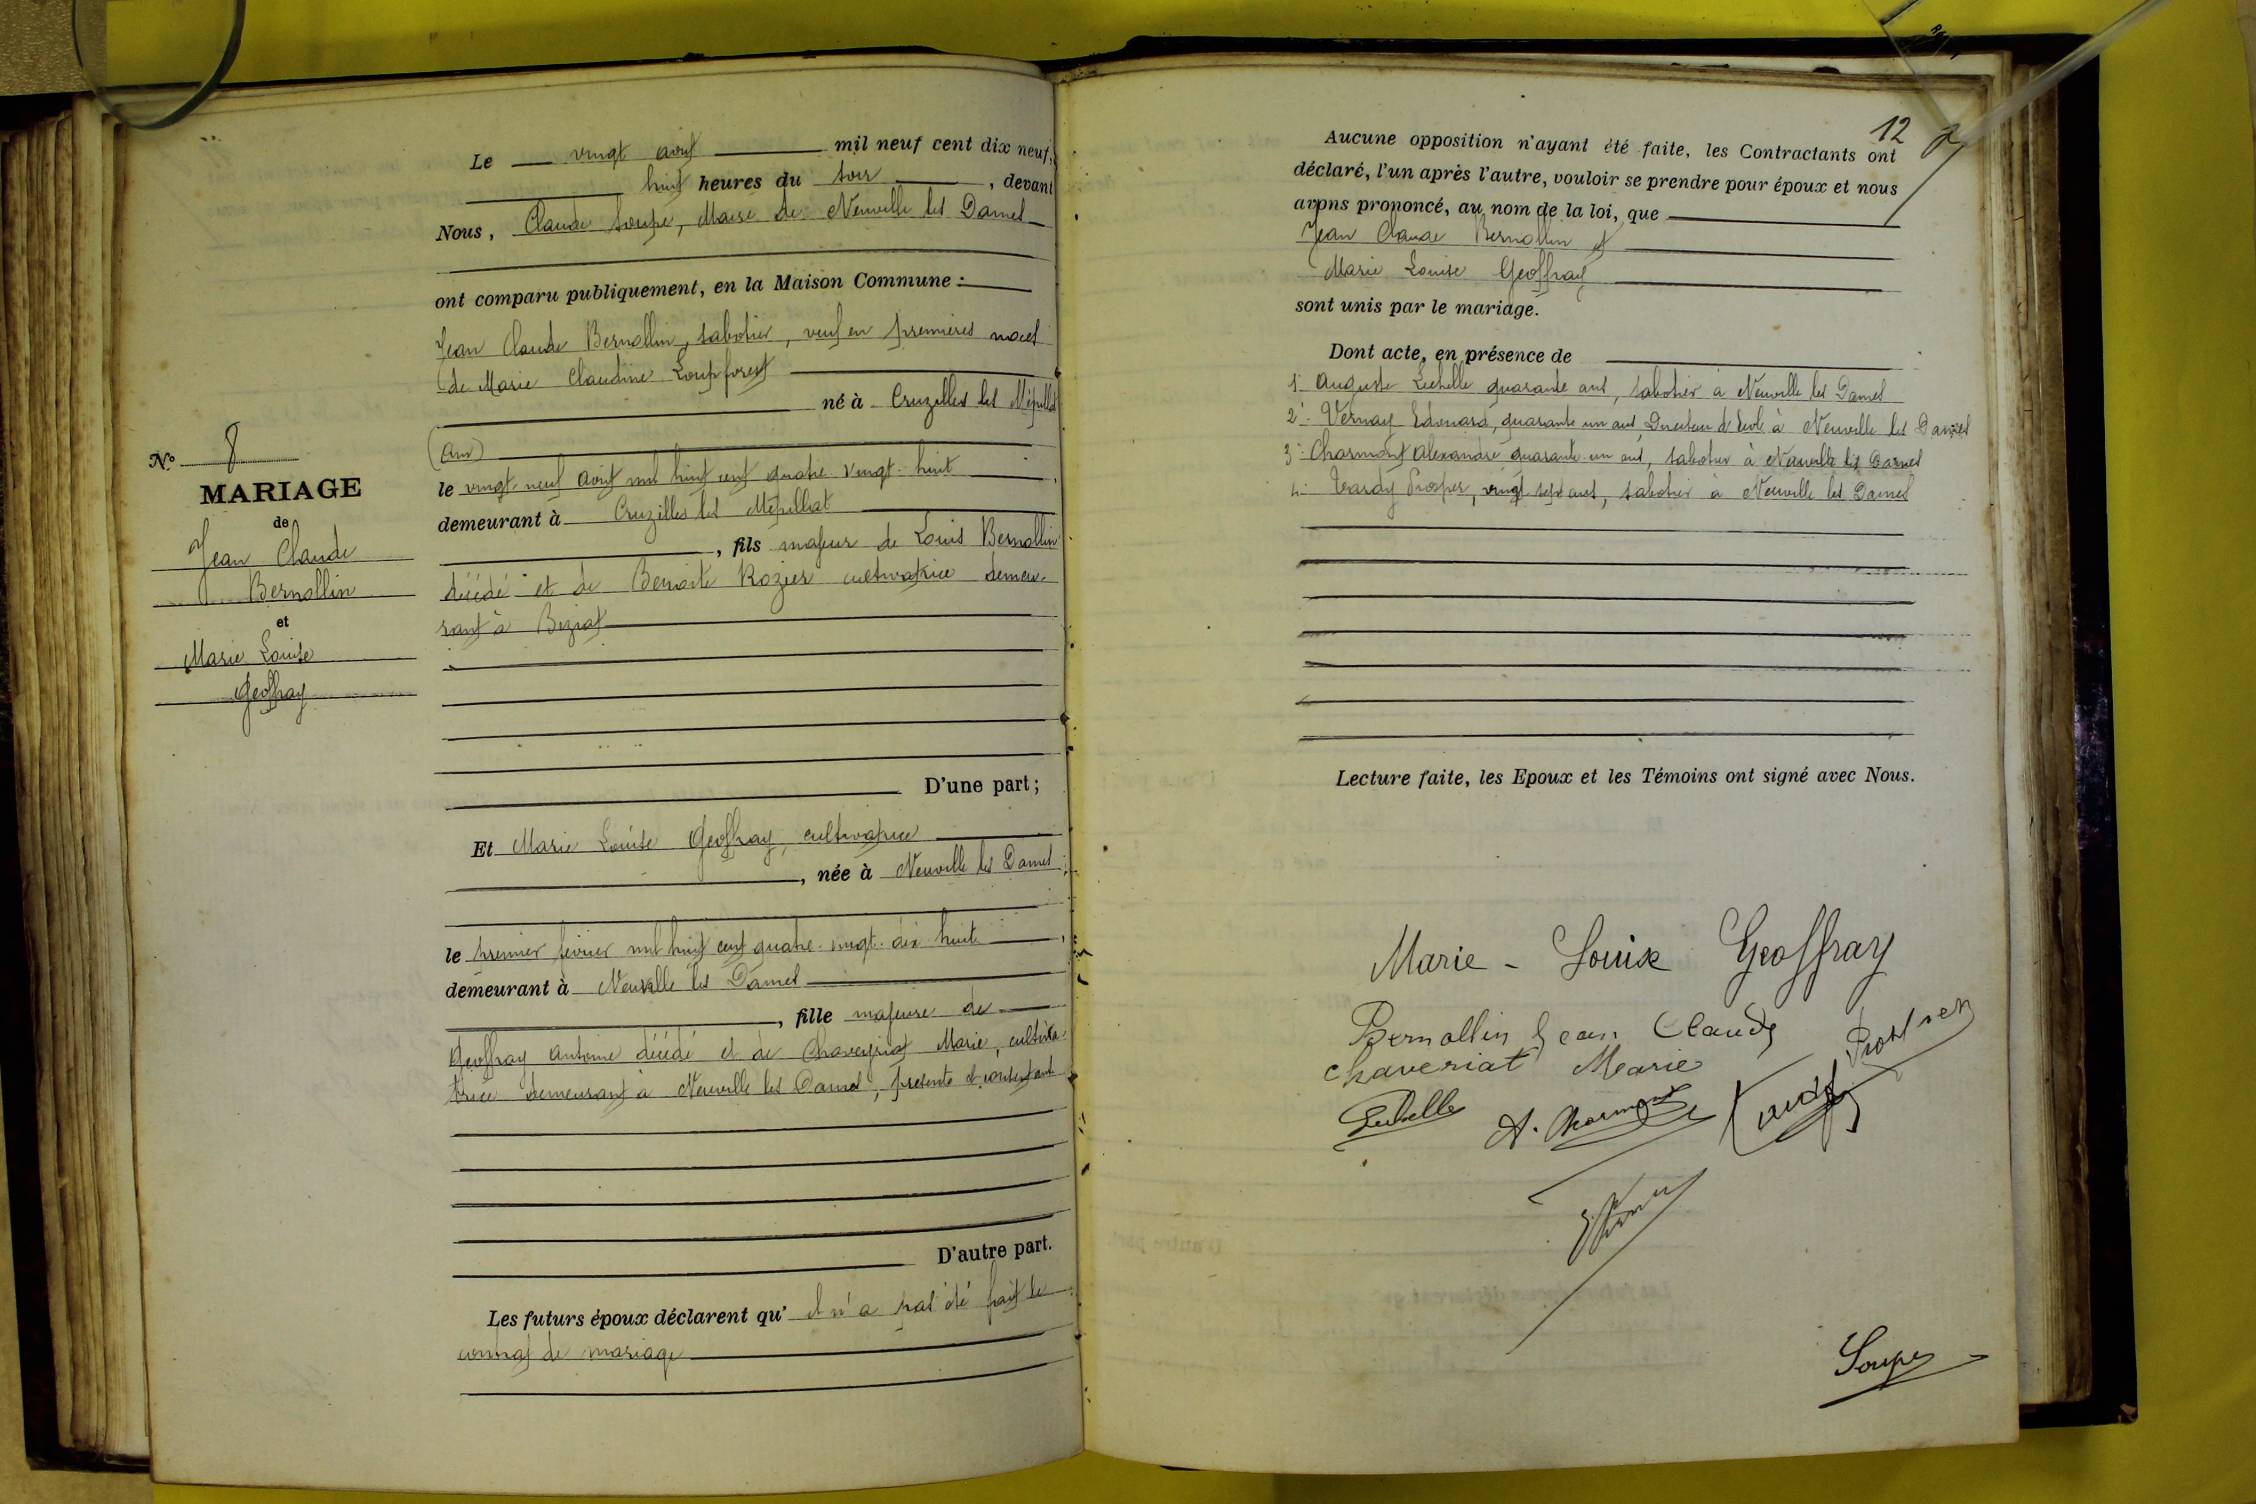 N.º 8
MARIAGE
de
Jean Claude
Bernollin
et
Marie Louise
Geoffray
Le vingt août mil neuf cent dix neuf,
huit heures du soir, devant
Nous, Claude Soupe, Maire de Neuville les Dames
ont comparu publiquement, en la Maison Commune :
Jean Claude Bernollin, sabotier, veuf en premières noces
de Marie Claudine Loupforest
né à Cruzilles les Mépillat
(Ain)
le vingt-neuf août mil huit cent quatre-vingt-huit
demeurant à Cruzilles les Mépillat
, fils majeur de Louis Bernollin
décédé et de Benoite Rozier cultivatrice demeu-
rant à Biziat
D'une part ;
Et Marie Louise Geoffray, cultivatrice
, née à Neuville les Dames
le premier février mil huit cent quatre-vingt-dix huit
demeurant à Neuville les Dames
, fille majeure de
Geoffray Antoine décédé et de Chaveyriat Marie, cultiva-
trice demeurant à Neuville les Dames, présente et consentant
D'autre part.
Les futurs époux déclarent qu' il n'a pas été fait de
contrat de mariage
12
Aucune opposition n'ayant été faite, les Contractants ont
déclaré, l'un après l'autre, vouloir se prendre pour époux et nous
avons prononcé, au nom de la loi, que
Jean Claude Bernollin et
Marie Louise Geoffray
sont unis par le mariage.
Dont acte, en présence de
1: Auguste Luthelle quarante ans, sabotier à Neuville les Dames
2: Vernay Edouard, quarante un ans, Directeur d'école à Neuville les Dames
3: Charmont Alexandre quarante-un ans, sabotier à Neuville les Dames
4: Tardy Prosper, vingt sept ans, sabotier à Neuville les Dames
Lecture faite, les Epoux et les Témoins ont signé avec Nous.
Marie - Louise Geoffray
Bernollin Jean Claude
Chaveriat Marie
A. Charmont
Tardy
Soupe